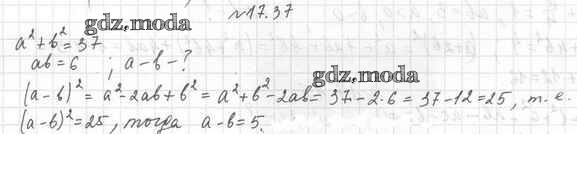 №17.37
gdz.moda
a² + b² = 37
ab = 6 ; a - b - ?
gdz.moda
(a - b)² = a² - 2ab + b² = a² + b² - 2ab = 37 - 2·6 = 37 - 12 = 25, т. е.
(a - b)² = 25, тогда a - b = 5.